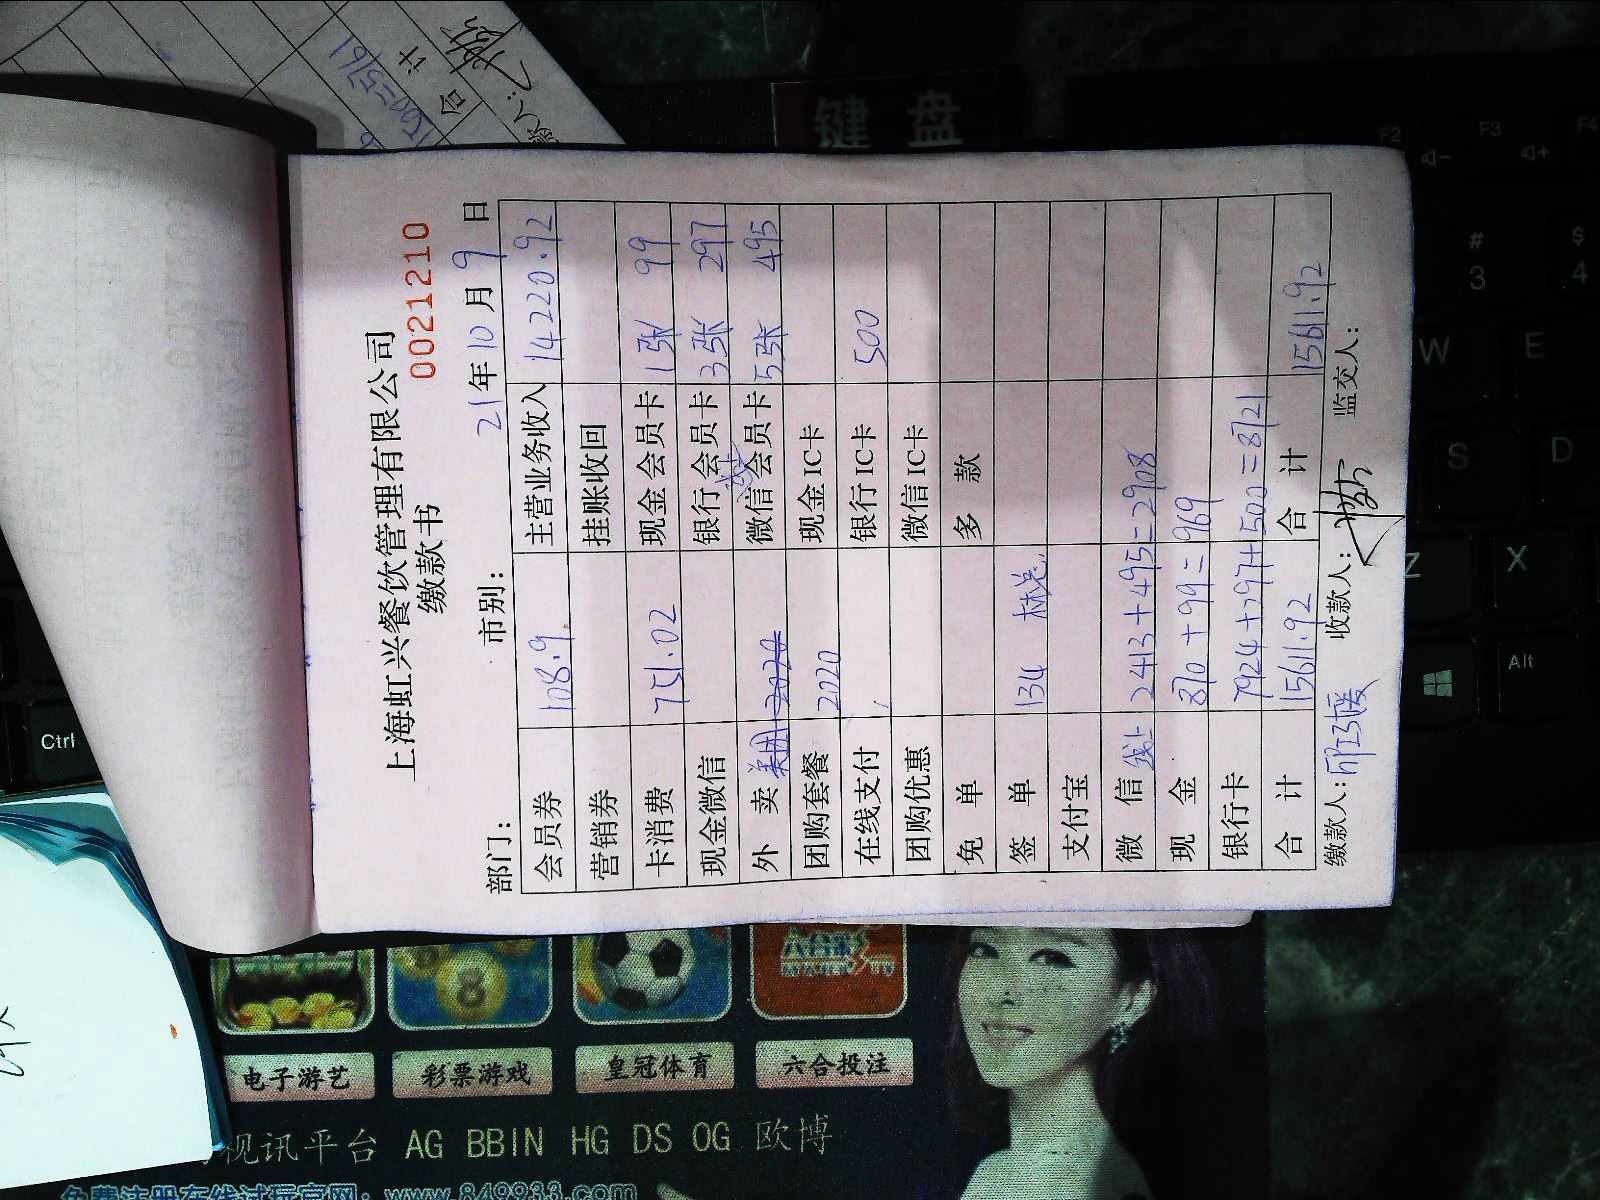 上海虹兴餐饮管理有限公司
缴款书
0021210
部门： 市别： 21年10月9日
会员券 108.9 主营业务收入 14220.92
营销券 挂账收回
卡消费 751.02 现金会员卡 1张 99
现金微信 银行会员卡 3张 297
外卖 美团 2020 微信会员卡 5张 495
团购套餐 2020 现金IC卡
在线支付 银行IC卡 500
团购优惠 微信IC卡
免单 多款
签单 134 林总
支付宝
微信 线上 2413+495=2908
现金 870+99=969
银行卡 7924+297+500=8721
合计 15611.92 合计 15611.92
缴款人： 收款人： 监交人：
合计
键盘
F2
F3
F4
#
3
$
4
W
E
S
D
Z
X
Alt
Ctrl
电子游艺
彩票游戏
皇冠体育
六合投注
8
视讯平台 AG BBIN HG DS OG 欧博
免费注册在线试玩官网：www.849933.com